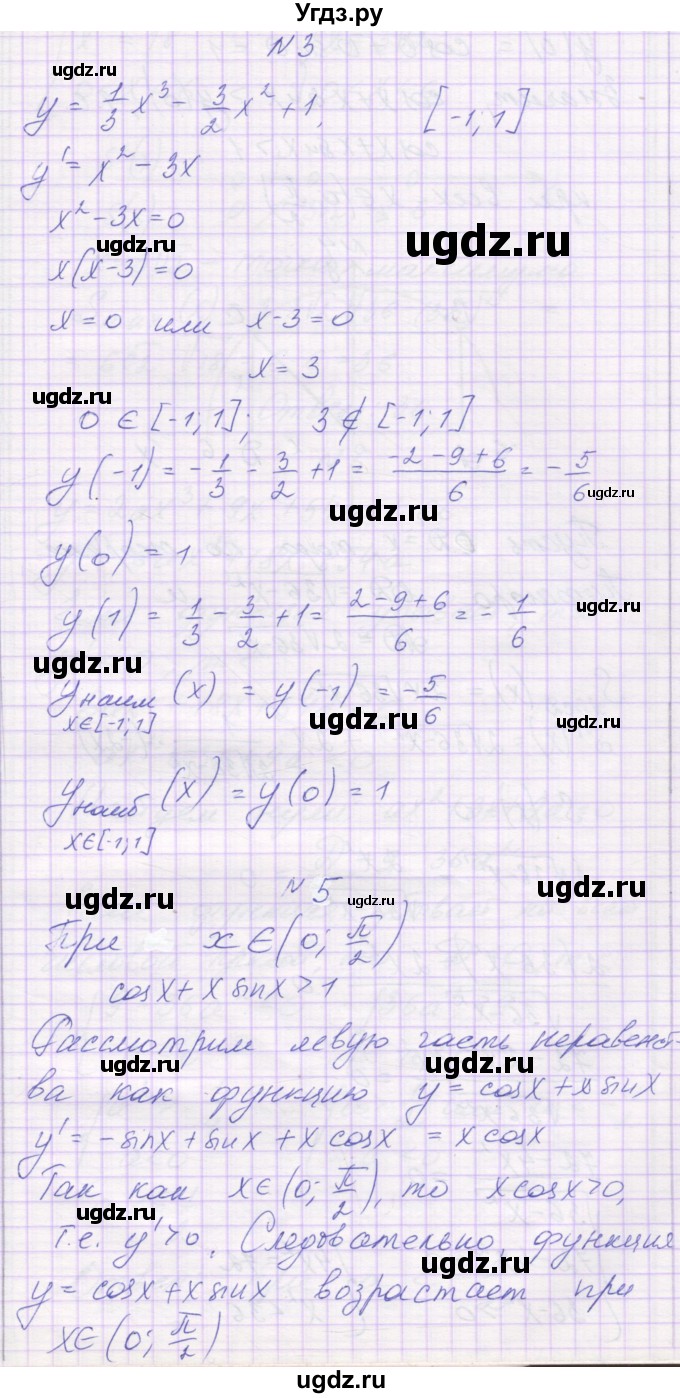 Угдз.ру
N 3
ugdz.ru
y = 1/3 x³ - 3/2 x² + 1, [-1; 1]
y' = x² - 3x
x² - 3x = 0
ugdz.ru
ugdz.ru
x(x-3) = 0
x = 0 или x - 3 = 0
x = 3
ugdz.ru
0 ∈ [-1; 1]; 3 ∉ [-1; 1]
y(-1) = -1/3 - 3/2 + 1 = (-2-9+6)/6 = -5/6
ugdz.ru
ugdz.ru
y(0) = 1
y(1) = 1/3 - 3/2 + 1 = (2-9+6)/6 = -1/6
ugdz.ru
ugdz.ru
y наим (x) = y(-1) = -5/6
x∈[-1;1]
ugdz.ru
ugdz.ru
y наиб (x) = y(0) = 1
x∈[-1;1]
N 5
ugdz.ru
ugdz.ru
ugdz.ru
При x ∈ (0; π/2)
cosx + x sinx > 1
Рассмотрим левую часть неравенст-
ugdz.ru
ugdz.ru
ва как функцию y = cosx + x sinx
y' = -sinx + sinx + x cosx = x cosx
Так как x∈(0; π/2), то x cosx > 0,
ugdz.ru
т.е. y' > 0. Следовательно, функция
ugdz.ru
y = cosx + x sinx возрастает при
x∈(0; π/2)
ugdz.ru
ugdz.ru